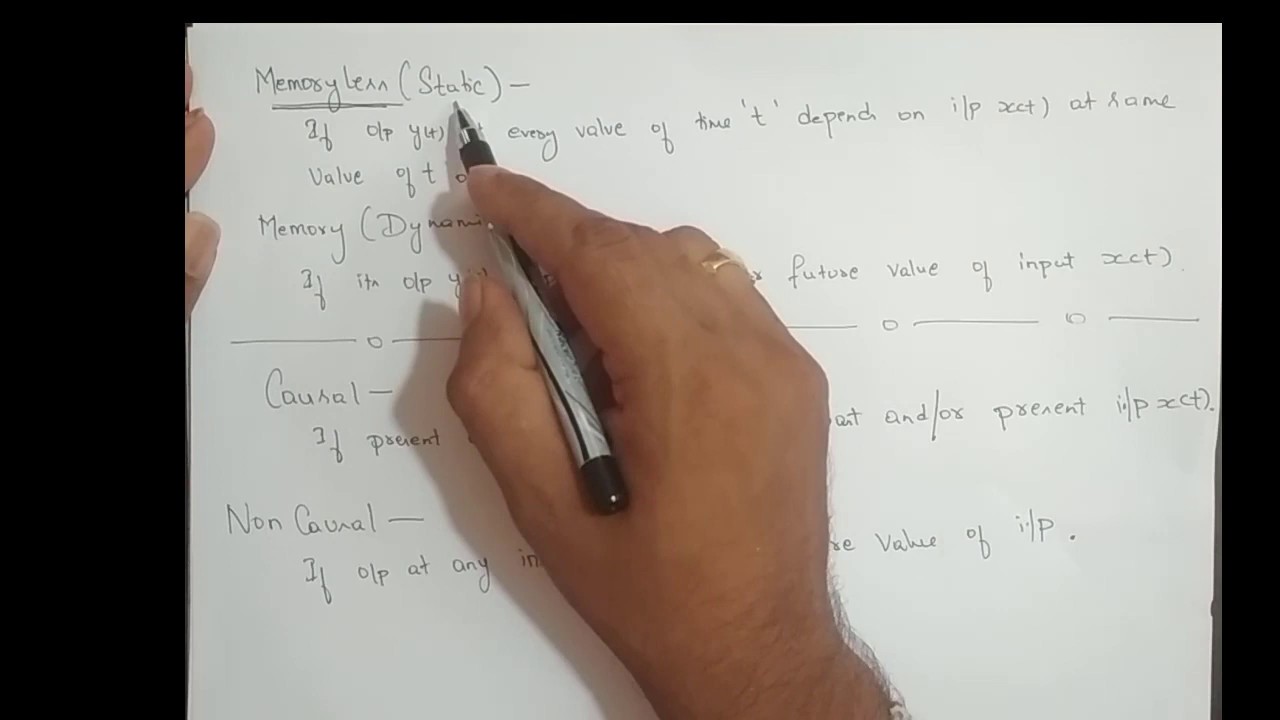 Memoryless (Static) –
If o/p y(t) every value of time 't' depend on i/p x(t) at same
Value of t
Memory (Dynami
If its o/p future value of input x(t).
Causal –
If present and/or present i/p x(t).
Non Causal –
If o/p at any value of i/p.